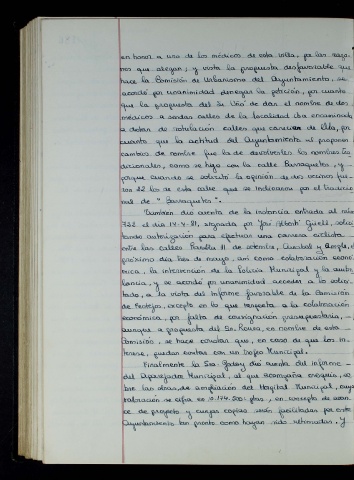 en honor a uno de los médicos de esta villa, por las razo-
nes que alegan, y vista la propuesta desfavorable que
hace la Comisión de Urbanismo del Ayuntamiento, se
acordó por unanimidad denegar la petición, por cuanto
que la propuesta del Sr. de dar el nombre de dos
médicos a sendas calles de la localidad iba encaminada
a dotar de rotulación calles que carecían de ella, por
cuanto que la actitud del Ayuntamiento al proponer
cambio de nombre fue la de devolverles los nombres tra-
dicionales, como se hizo con la calle Barraquetes, y
porque cuando se solicitó la opinión de dos vecinos fue-
ron 22 los de esta calle que se inclinaron por el tradicio-
nal de "Barraquetes".
También dio cuenta de la instancia entrada al nº
732 el día 14-4-81, signada por José Alberto, solici-
tando autorización para efectuar una carrera ciclista
entre las calles Rambla 11 de setembre, Ciudad y, el
próximo día tres de mayo, así como colaboración econó-
mica, la intervención de la Policía Municipal y la ambu-
lancia, y se acordó por unanimidad acceder a lo solici-
tado, a la vista del informe favorable de la Comisión
de Festejos, excepto en lo que respecta a la colaboración
económica, por falta de consignación presupuestaria,
aunque a propuesta del Sr., en nombre de esta
Comisión, se hace constar que, en caso de que les in-
terese, puedan contar con un Trofeo Municipal.
Finalmente la Sra. Godoy dio cuenta del informe
del Aparejador Municipal, al que acompaña croquis, so-
bre las obras de ampliación del Hospital Municipal, cuya
valoración se cifra en 10.174.500 ptas, en concepto de avan-
ce de proyecto y cuyas copias serán facilitadas por este
Ayuntamiento tan pronto como hayan sido retiradas. Y